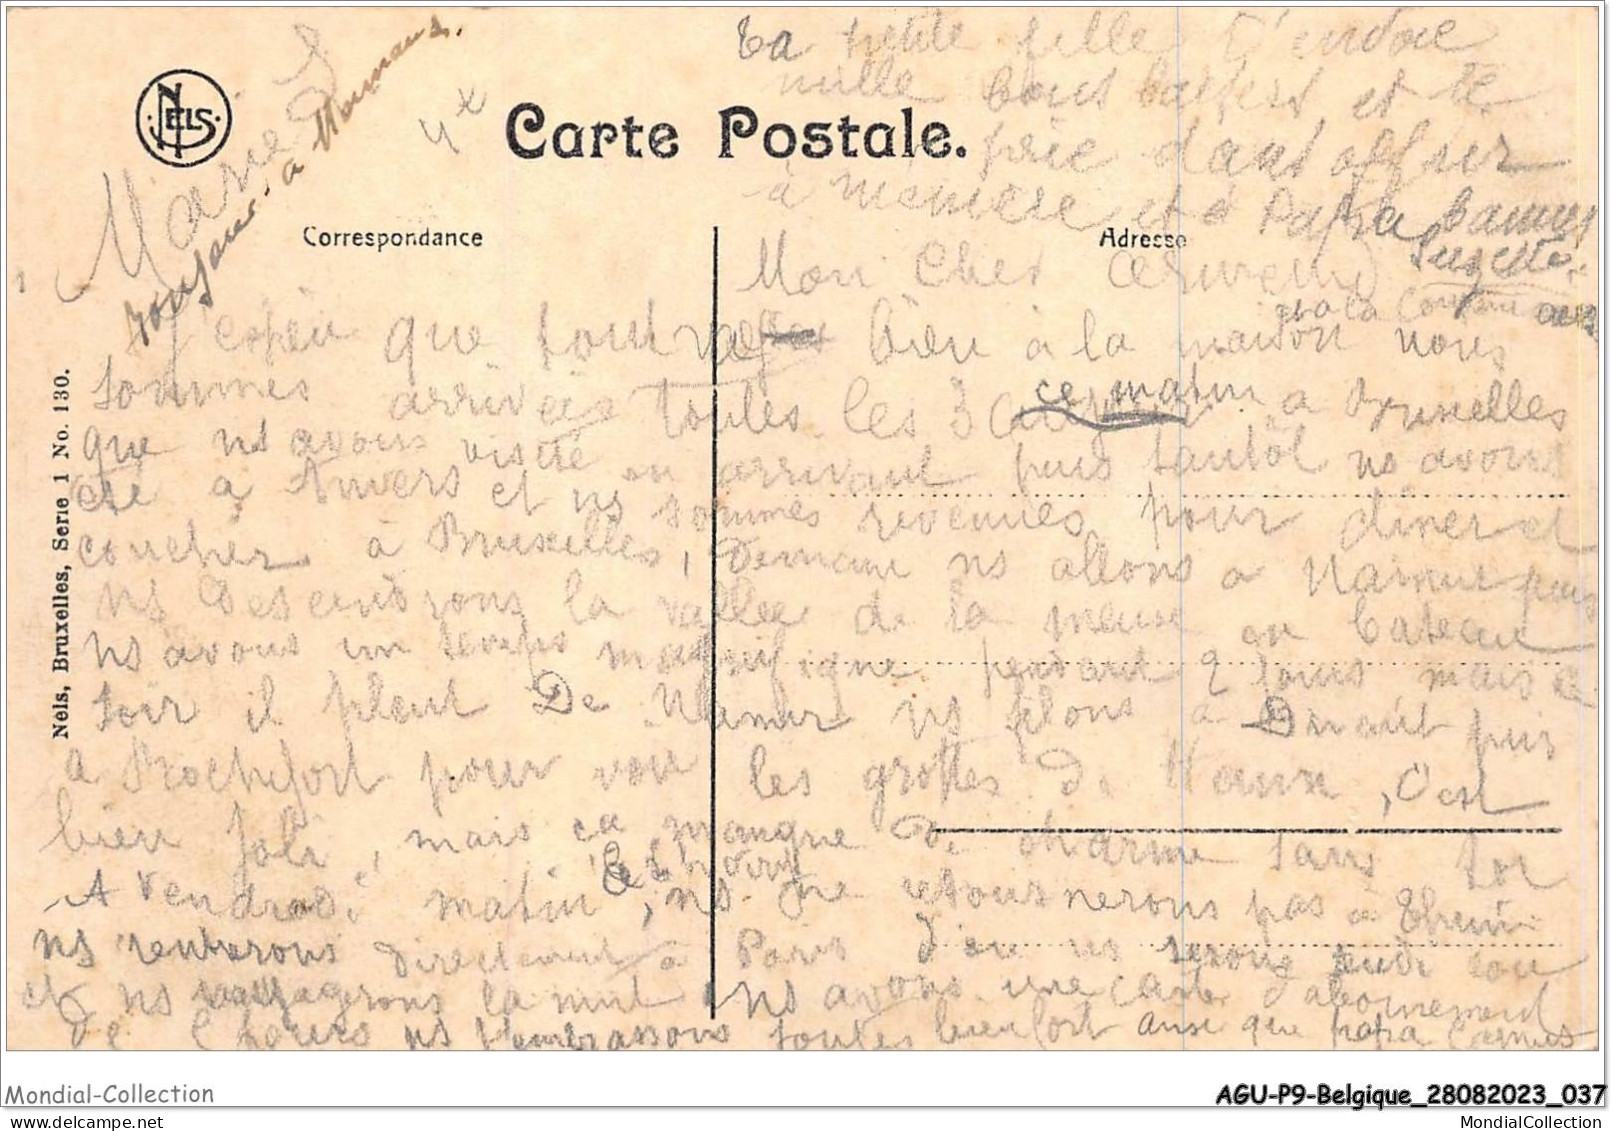 Ta petite fille t'envoie
mille bons baisers et te
prie d'en offrir
à mémère et à Papa Camus
Suzette
Carte Postale.
NELS
Marie
à Mamans.
Correspondance
Adresse
Mon Cher
J'espère que tout va bien à la maison nous
sommes arrivées toutes les 3 ce matin a Bruxelles
que ns avons visité en arrivant puis tantôt ns avons
été a Anvers et ns sommes revenues pour diner et
coucher à Bruxelles, Demain ns allons a Namur puis
ns Descendrons la vallée de la meuse en bateau
ns avons un temps magnifique pendant 2 jours mais ce
soir il pleut De Namur ns filons a Dinant puis
a Rochefort pour voir les grottes de Hanx, C'est
bien joli, mais ca manque de charme sans toi
A Vendredi matin, ns ne retournerons pas a
ns rentrerons Directement a Paris d'ou ns serons jeudi soir
et ns voyagerons la nuit ns avons une carte d'abonnement
de 5 jours ns t'embrassons toutes bien fort ainsi que papa Camus
Nels, Bruxelles, Serie 1 No. 130.
Mondial-Collection
AGU-P9-Belgique_28082023_037
www.mondial-collection.com
MondialCollection